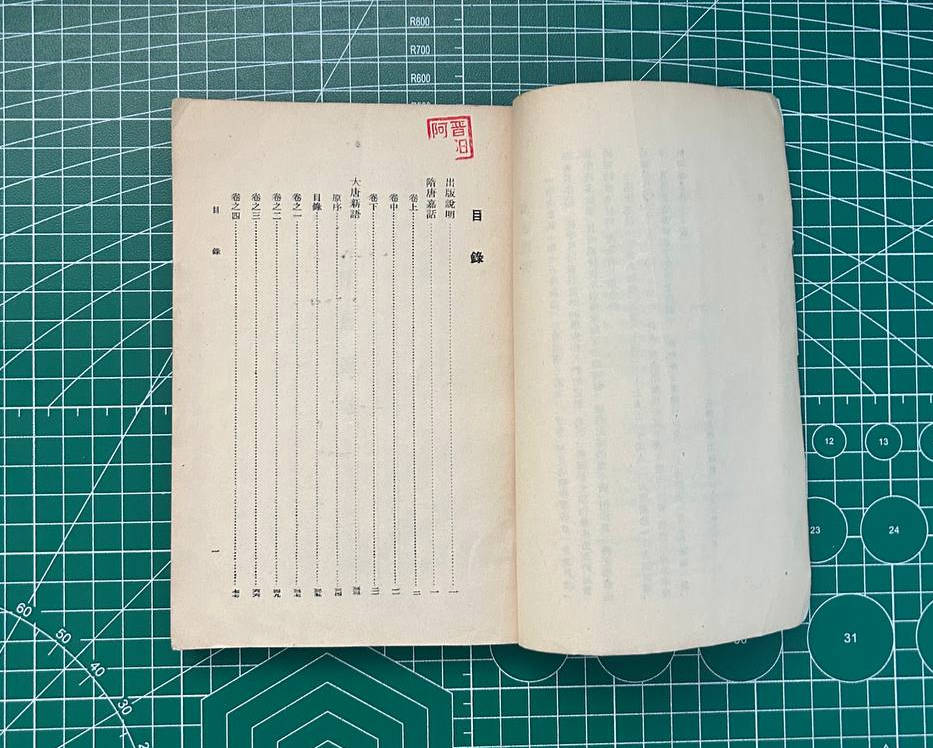 目錄
出版說明 一
隋唐嘉話 一
卷上 二
卷中
卷下
大唐新語
原序
目錄
卷之一 四七
卷之二 四九
卷之三 六六
卷之四 七七
目錄
一
R800
R700
R600
12
13
23
24
31
60
50
40
30